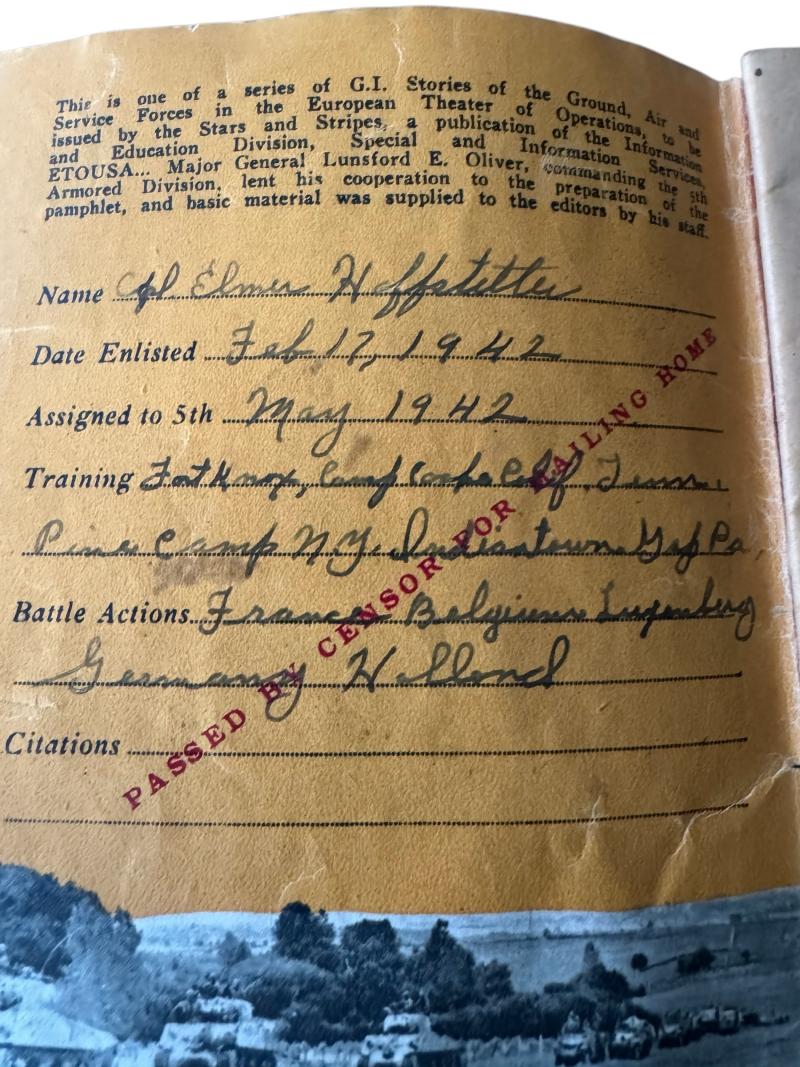 This is one of a series of G.I. Stories of the Ground, Air and
Service Forces in the European Theater of Operations, to be
issued by the Stars and Stripes, a publication of the Information
and Education Division, Special and Information Services,
ETOUSA... Major General Lunsford E. Oliver, commanding the 5th
Armored Division, lent his cooperation to the preparation of the
pamphlet, and basic material was supplied to the editors by his staff.
Name Cpl. Elmer Hoffstetter
Date Enlisted Feb 17, 1942
Assigned to 5th May 1942
Training Fort Knox, Camp Cooke Calif. Tenn.
Pine Camp N.Y. Indiantown Gap Pa,
Battle Actions France Belgium Luxenberg
Germany Holland
Citations
PASSED BY CENSOR FOR MAILING HOME